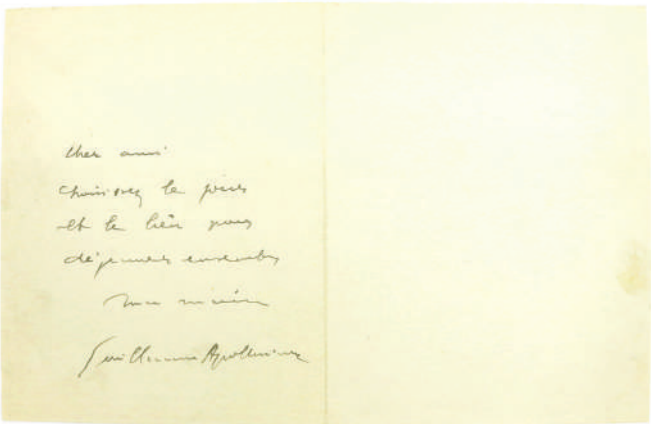 Cher ami
choisissez le jour
et le lieu pour
déjeuner ensemble
Ma main
Guillaume Apollinaire